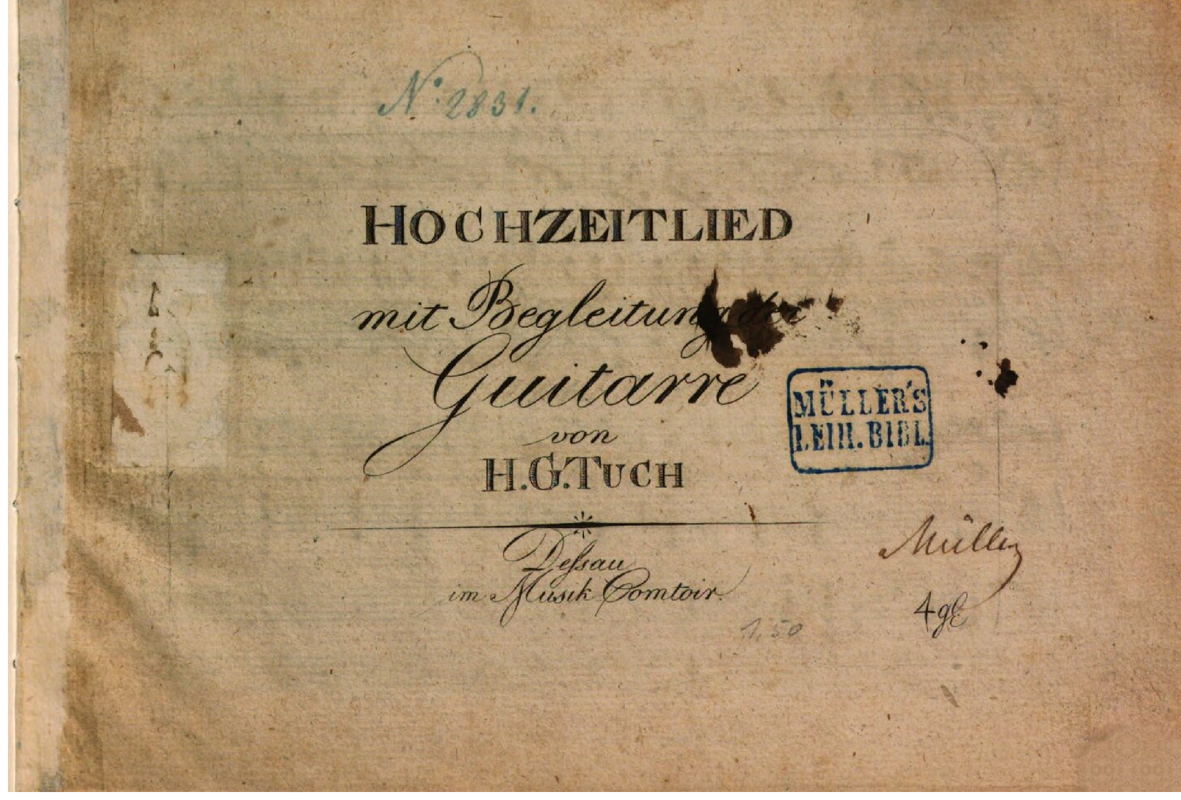 Nº 2831.
HOCHZEITLIED
mit Begleitung der
Guitarre
von
H.G. TUCH
MÜLLER'S
LEIH. BIBL.
Dessau
im Musik Comtoir.
Müller
4 gl
1,50